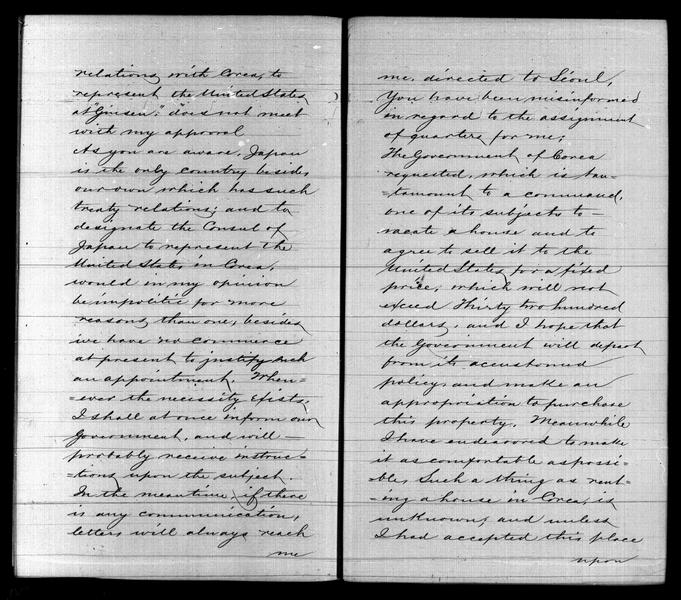 relations with Corea, to
represent the United States
at "Ginsen," does not meet
with my approval
As you are aware, Japan
is the only country besides
our own which has such
treaty relations; and to
designate the Consul of
Japan to represent the
United States in Corea,
would in my opinion
be impolitic for more
reasons than one; besides
we have no commerce
at present to justify such
an appointment. When=
=ever the necessity exists,
I shall at once inform our
Government, and will —
probably receive instruc=
=tions upon the subject.
In the meantime, if there
is any communication,
letters will always reach
me
me, directed to Séoul,
You have been misinformed
in regard to the assignment
of quarters for me;
The Government of Corea
requested, which is tan=
=tamount to a command,
one of its subjects to —
vacate a house and to
agree to sell it to the
United States for a fixed
price, which will not
exceed Thirty two hundred
dollars, and I hope that
the Government will depart
from its accustomed
policy and make an
appropriation to purchase
this property. Meanwhile
I have endeavored to make
it as comfortable as possi=
=ble, Such a thing as rent=
=ing a house in Corea, is
unknown, and unless
I had accepted this place
upon